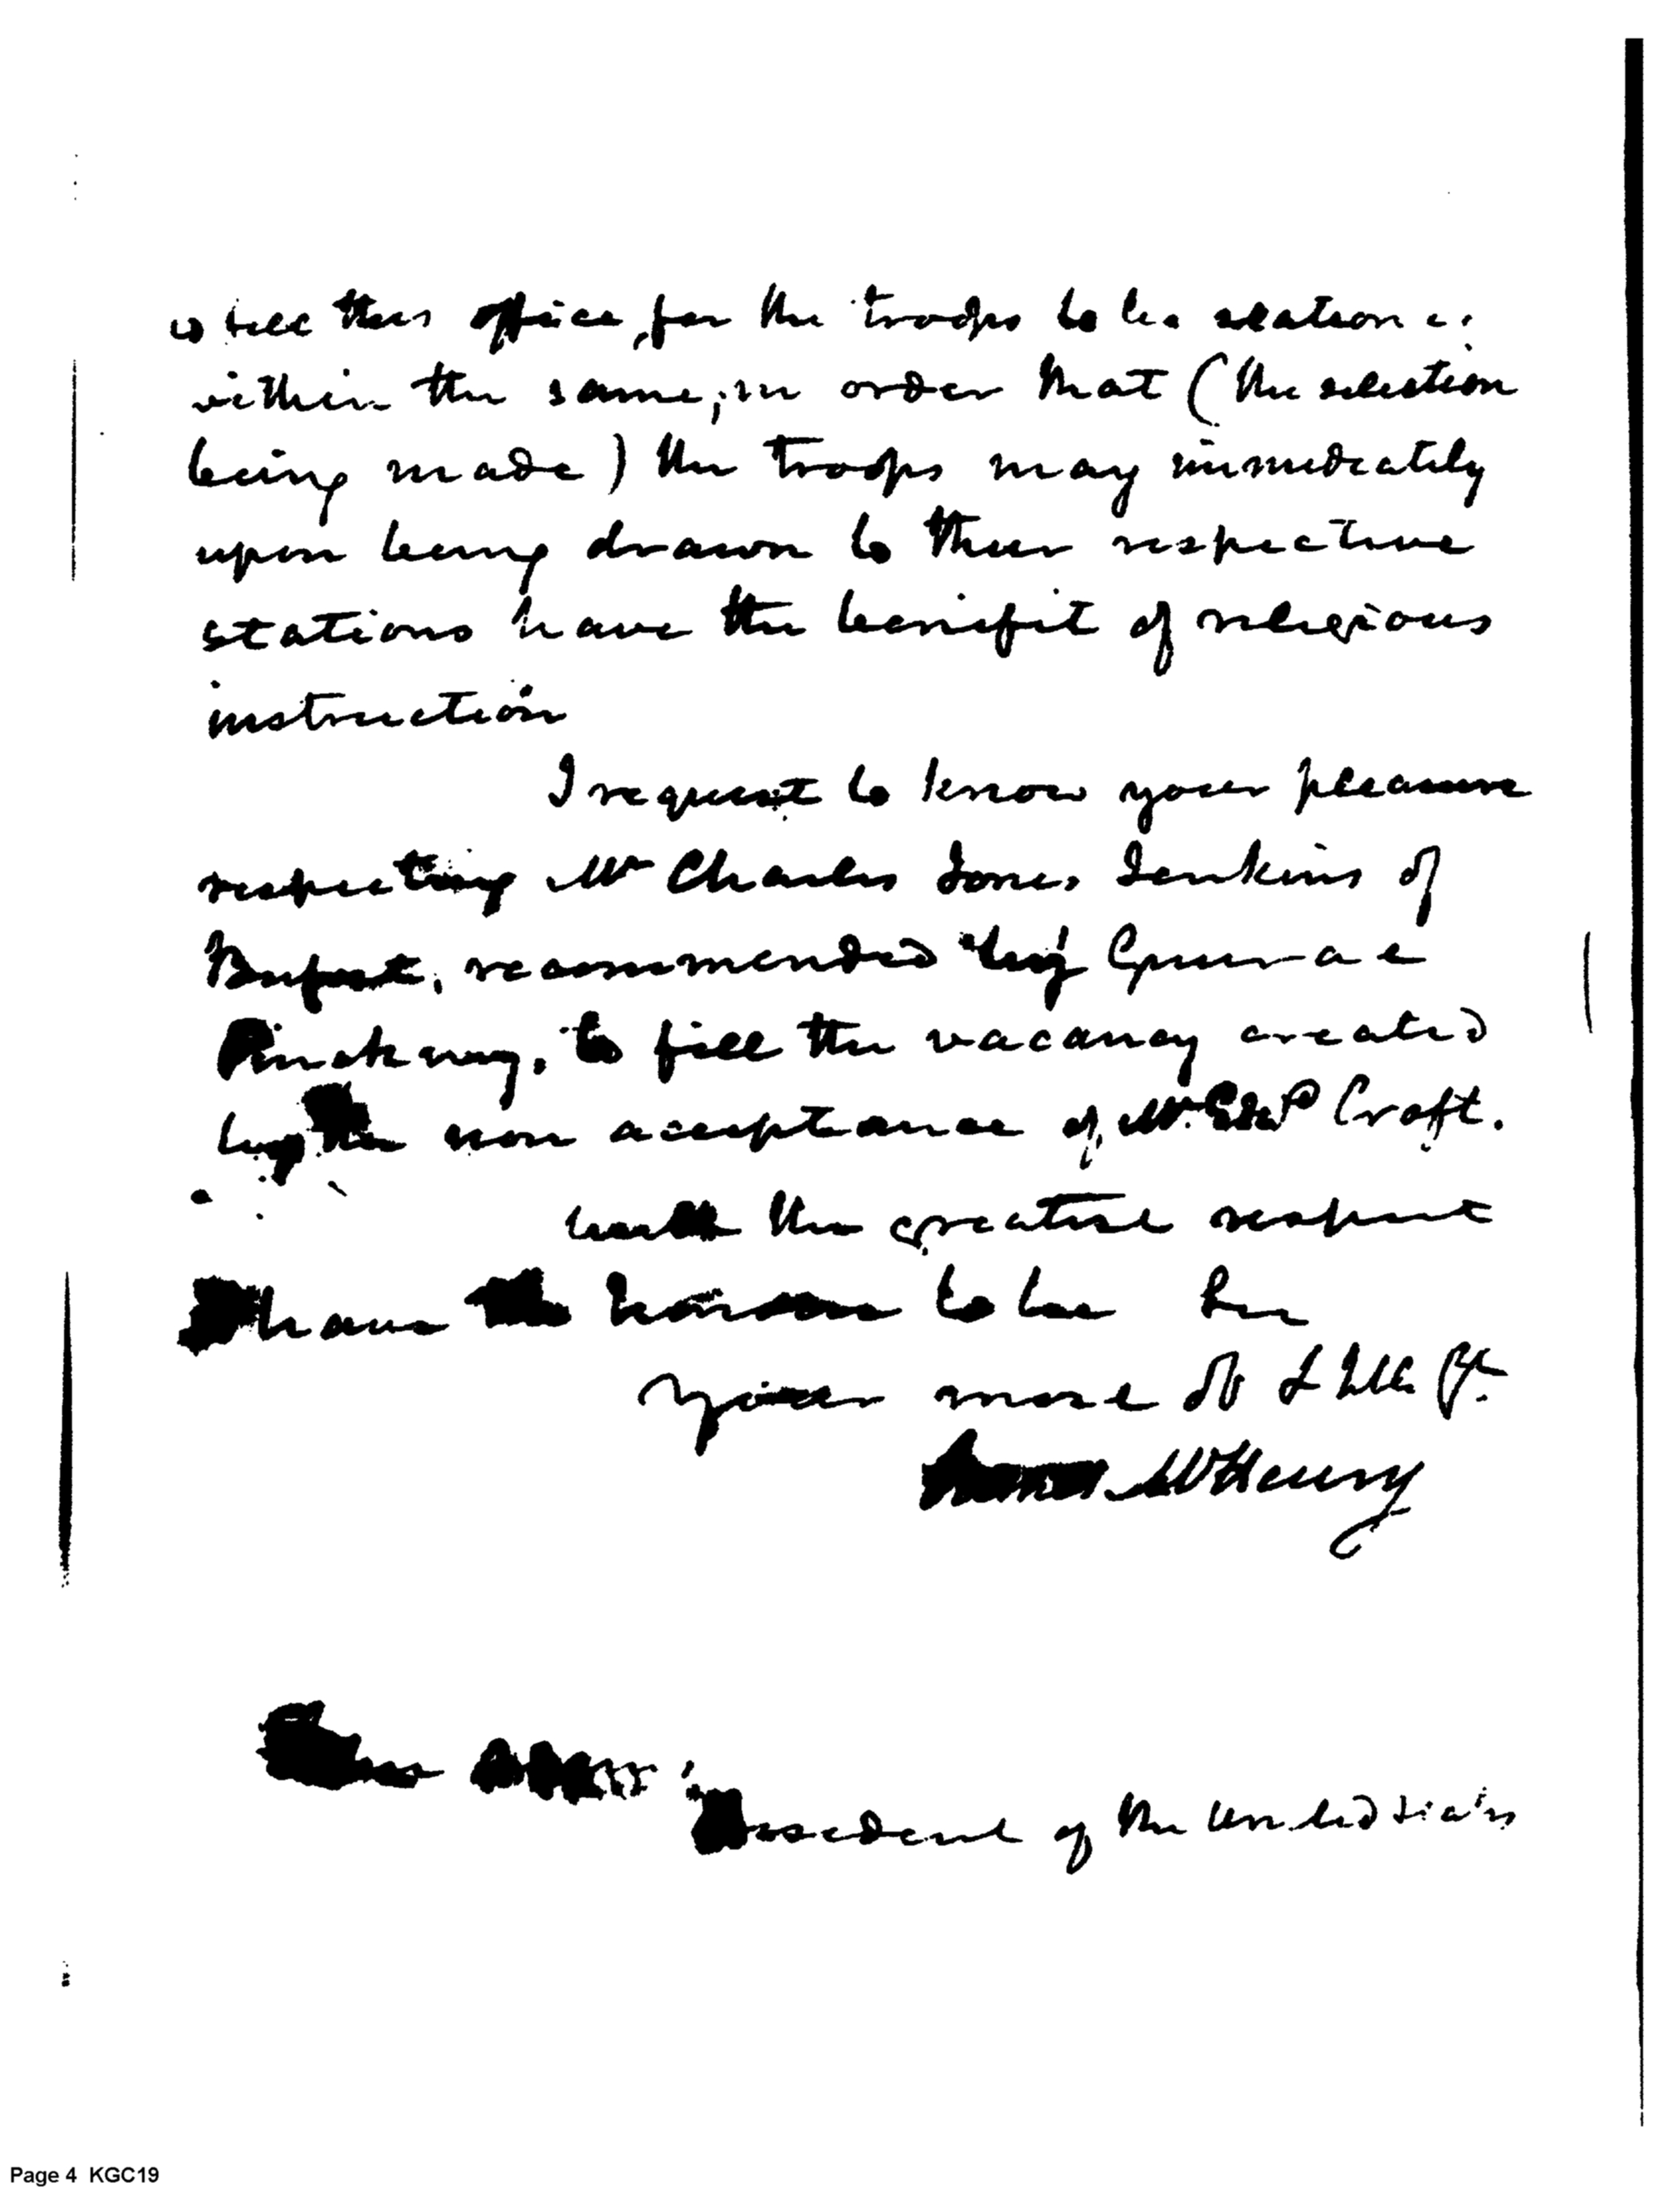 to fill this office, for the troops to be station
within the same, in order that (the selection
being made) the troops may immediately
upon being drawn to their respective
stations have the benifit of religious
instruction
I request to know your pleasure
respecting Mr Charles Jones Jenkins of
recommended by General
Pinckney, to fill the vacancy created
by the non acceptance of Mr Craft.
with the greatest respect
I have the honour to be Sir
Your most Ob & Hble St
James McHenry
President of the United States
Page 4 KGC19